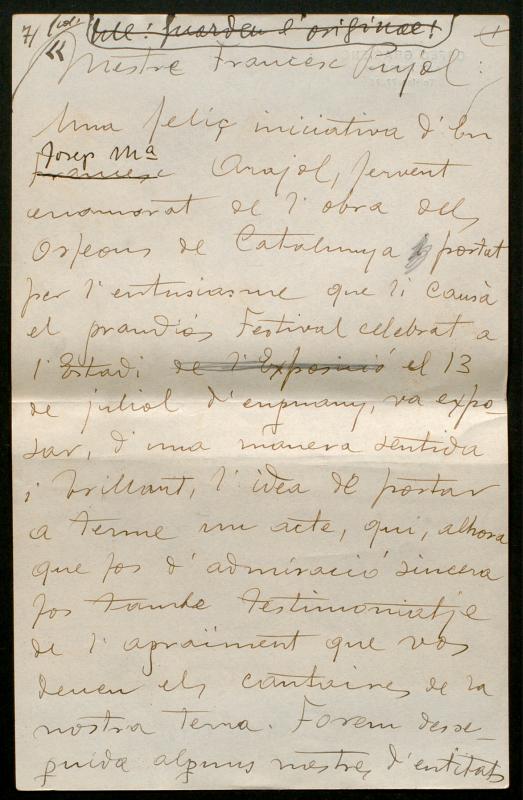 7/
guardeu l'original!
«
Mestre Francesc Pujol:
Una feliç iniciativa d'En
Josep Mª
Francesc Arajol, fervent
enamorat de l'obra dels
Orfeons de Catalunya portat
per l'entusiasme que li causà
el grandiós Festival celebrat a
l'Estadi de l'Exposició el 13
de juliol d'enguany, va expo-
sar, d'una manera sentida
i brillant, l'idea de portar
a terme un acte, qui, alhora
que fos d'admiració sincera
fos tambe testimoniatje
de l'agraiment que vos
deuen els cantaires de la
nostra terra. Forem desse-
guida alguns mestres d'entitats